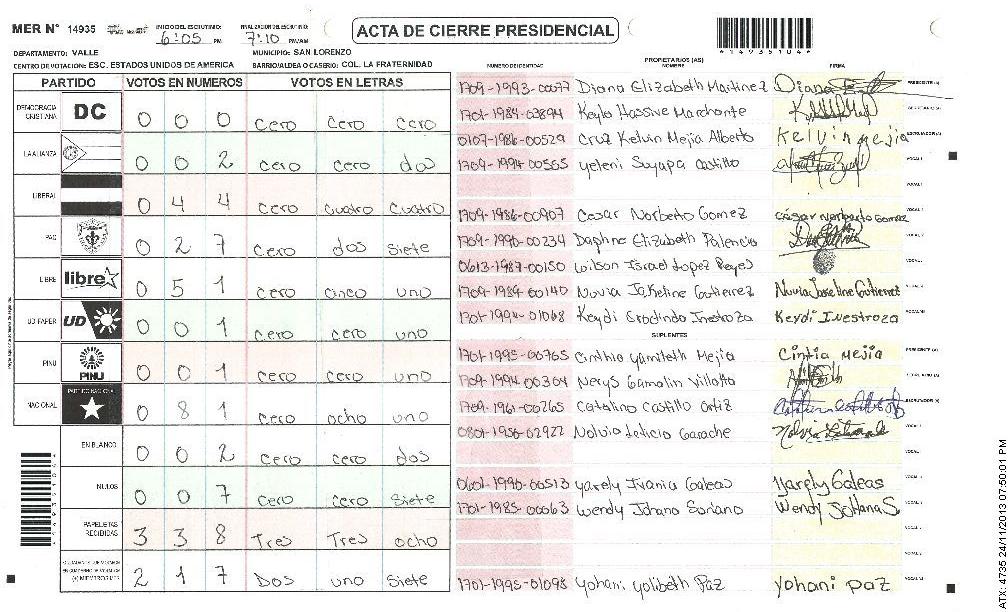 MER N° 14935
INICIO DEL ESCRUTINIO: 6:05 PM
FINALIZACION DEL ESCRUTINIO: 7:10 PM/AM
ACTA DE CIERRE PRESIDENCIAL
*14935104*
DEPARTAMENTO: VALLE
MUNICIPIO: SAN LORENZO
CENTRO DE VOTACION: ESC. ESTADOS UNIDOS DE AMERICA
BARRIO/ALDEA O CASERIO: COL. LA FRATERNIDAD
PARTIDO VOTOS EN NUMEROS VOTOS EN LETRAS
DEMOCRACIA CRISTIANA DC 0 0 0 cero cero cero
LA ALIANZA 0 0 2 cero cero dos
LIBERAL 0 4 4 cero cuatro cuatro
PAC 0 2 7 cero dos siete
LIBRE libre 0 5 1 cero cinco uno
UD FAPER UD 0 0 1 cero cero uno
PINU PINU 0 0 1 cero cero uno
NACIONAL PARTIDO NACIONAL 0 8 1 cero ocho uno
EN BLANCO 0 0 2 cero cero dos
NULOS 0 0 7 cero cero siete
PAPELETAS RECIBIDAS 3 3 8 Tres Tres ocho
2 1 7 Dos uno siete
PROPIETARIOS (AS)
NUMERO DE IDENTIDAD NOMBRE FIRMA
1709-1993-00077 Diana Elizabeth Martinez Diana PRESIDENTE (A)
1701-1984-03894 Keyla Hassive Marchante SECRETARIO (A)
0107-1986-00529 Cruz Kelvin Mejia Alberto Kelvin mejia ESCRUTADOR (A)
1709-1994-00565 Yeleni Suyapa Castillo VOCAL I
1709-1986-00907 Cesar Norberto Gomez César Norberto Gomez
1709-1990-00234 Daphne Elizabeth Palencia
0613-1987-00150 Wilson Israel Lopez Reyes
1709-1984-00140 Nuvia Jakeline Gutierrez Nuvia Joseline Gutierrez
1701-1994-01068 Keydi Erodinda Inestroza Keydi Inestroza
SUPLENTES
1701-1995-00765 Cinthia Yamileth Mejia Cintia Mejia PRESIDENTE (A)
1709-1994-00304 Nerys Gamalin Villatta SECRETARIO (A)
1709-1961-00265 Catalino Castillo Ortiz ESCRUTADOR (A)
0801-1956-02922 Nolvia Leticia Garache Nolvia
0601-1990-00513 Yarely Ivania Galeas Yarely Galeas
1701-1985-00063 Wendy Johana Soriano Wendy Johana S
1701-1995-01098 Yohani Yolibeth Paz Yohani Paz
ATX: 4735 24/11/2013 07:50:01 PM